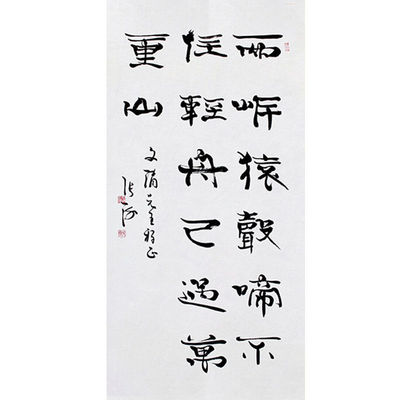 兩岸猿聲啼不
住輕舟已過萬
重山
文 先生 正